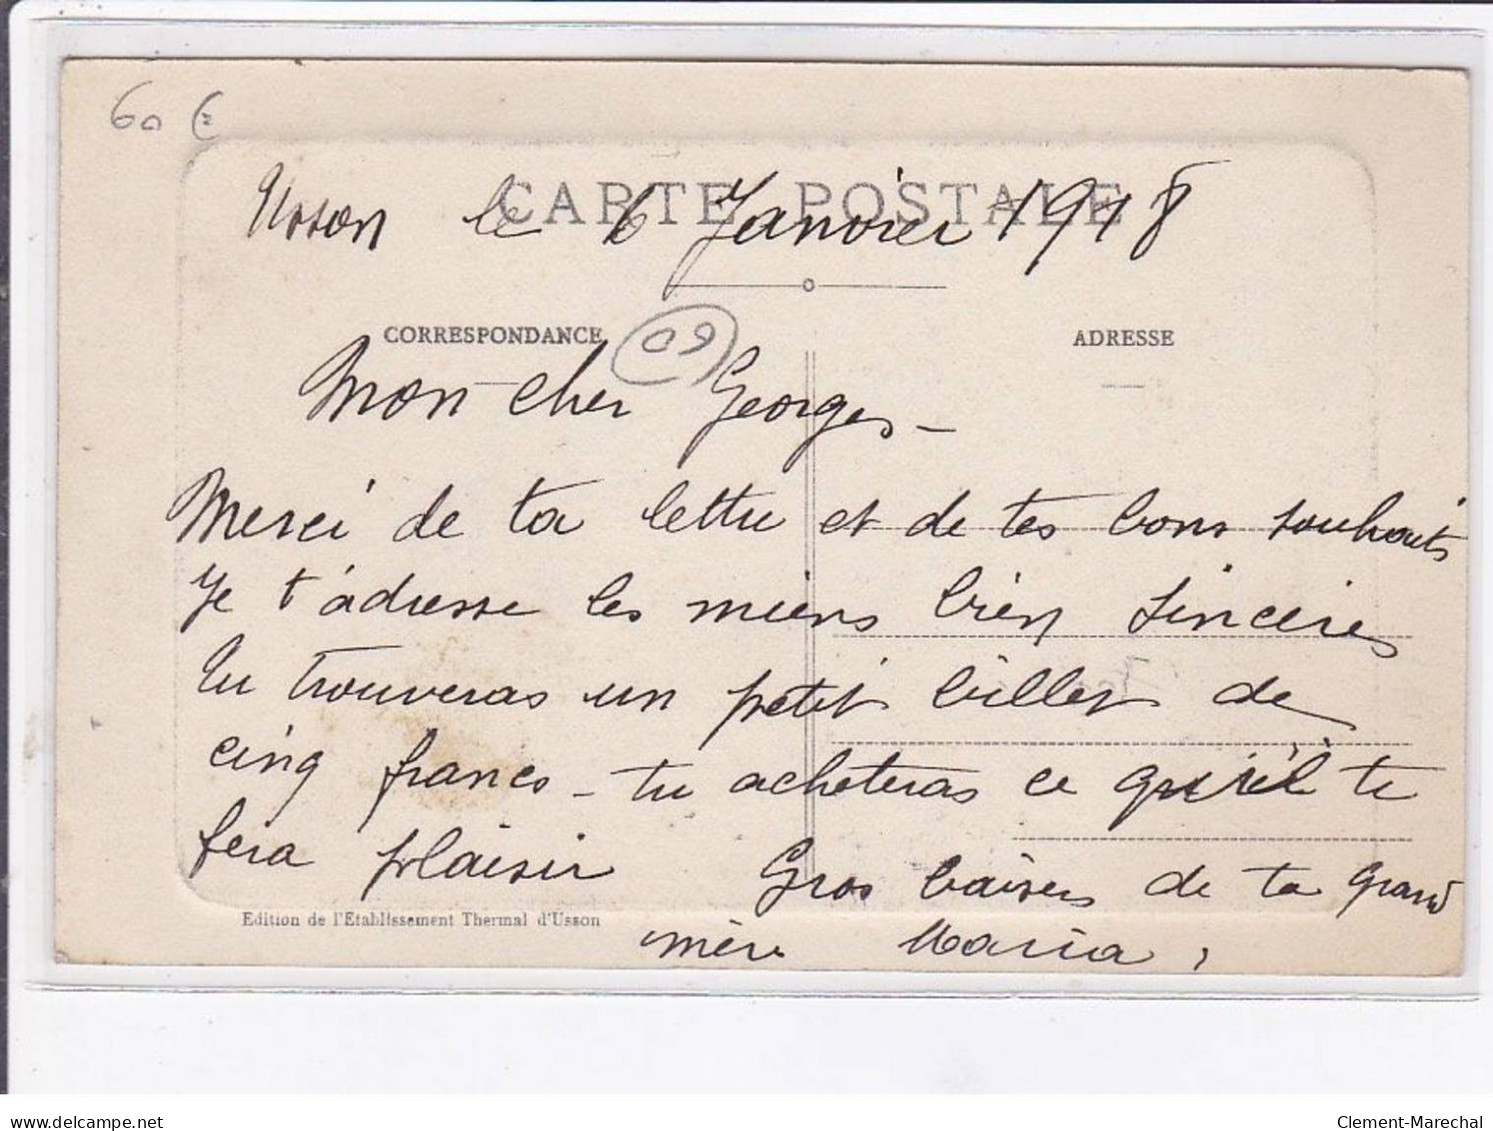 60 €
CARTE POSTALE
Usson le 6 Janvier 1918
CORRESPONDANCE
09
ADRESSE
Mon cher Georges -
Merci de ta lettre et de tes bons souhaits
Je t'adresse les miens bien sincères
Tu trouveras un petit billet de
cinq francs - tu acheteras ce qu'il te
fera plaisir Gros baisers de ta grand
mère Maria,
Edition de l'Etablissement Thermal d'Usson
delcampe.net
Clement-Marechal